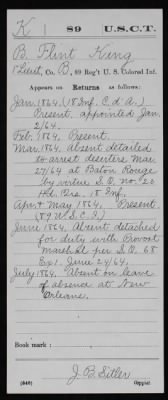 K | 89 | U.S.C.T.
B. Flint King
1 Lieut, Co. B, 89 Reg't U. S. Colored Inf.
Appears on
Returns as follows:
Jan. 1864, (18 Inf. C. d'A.)
Present, appointed Jan.
2/64.
Feb. 1864, Present.
Mar. 1864. Absent detailed
to arrest deserters Mar.
27/64 at Baton Rouge
by virtue S.O. no. 20
Hd. Qrs. 18 Inf.
Apr. & May 1864, Present.
(89 U.S.C.I.)
June 1864, Absent detached
for duty with Provost
marshal per S.O. 65
Ex 1. June 24/64.
July 1864, Absent on leave
of absence at New
Orleans.
Book mark:
J. B. Sitler
(546) Copyist.